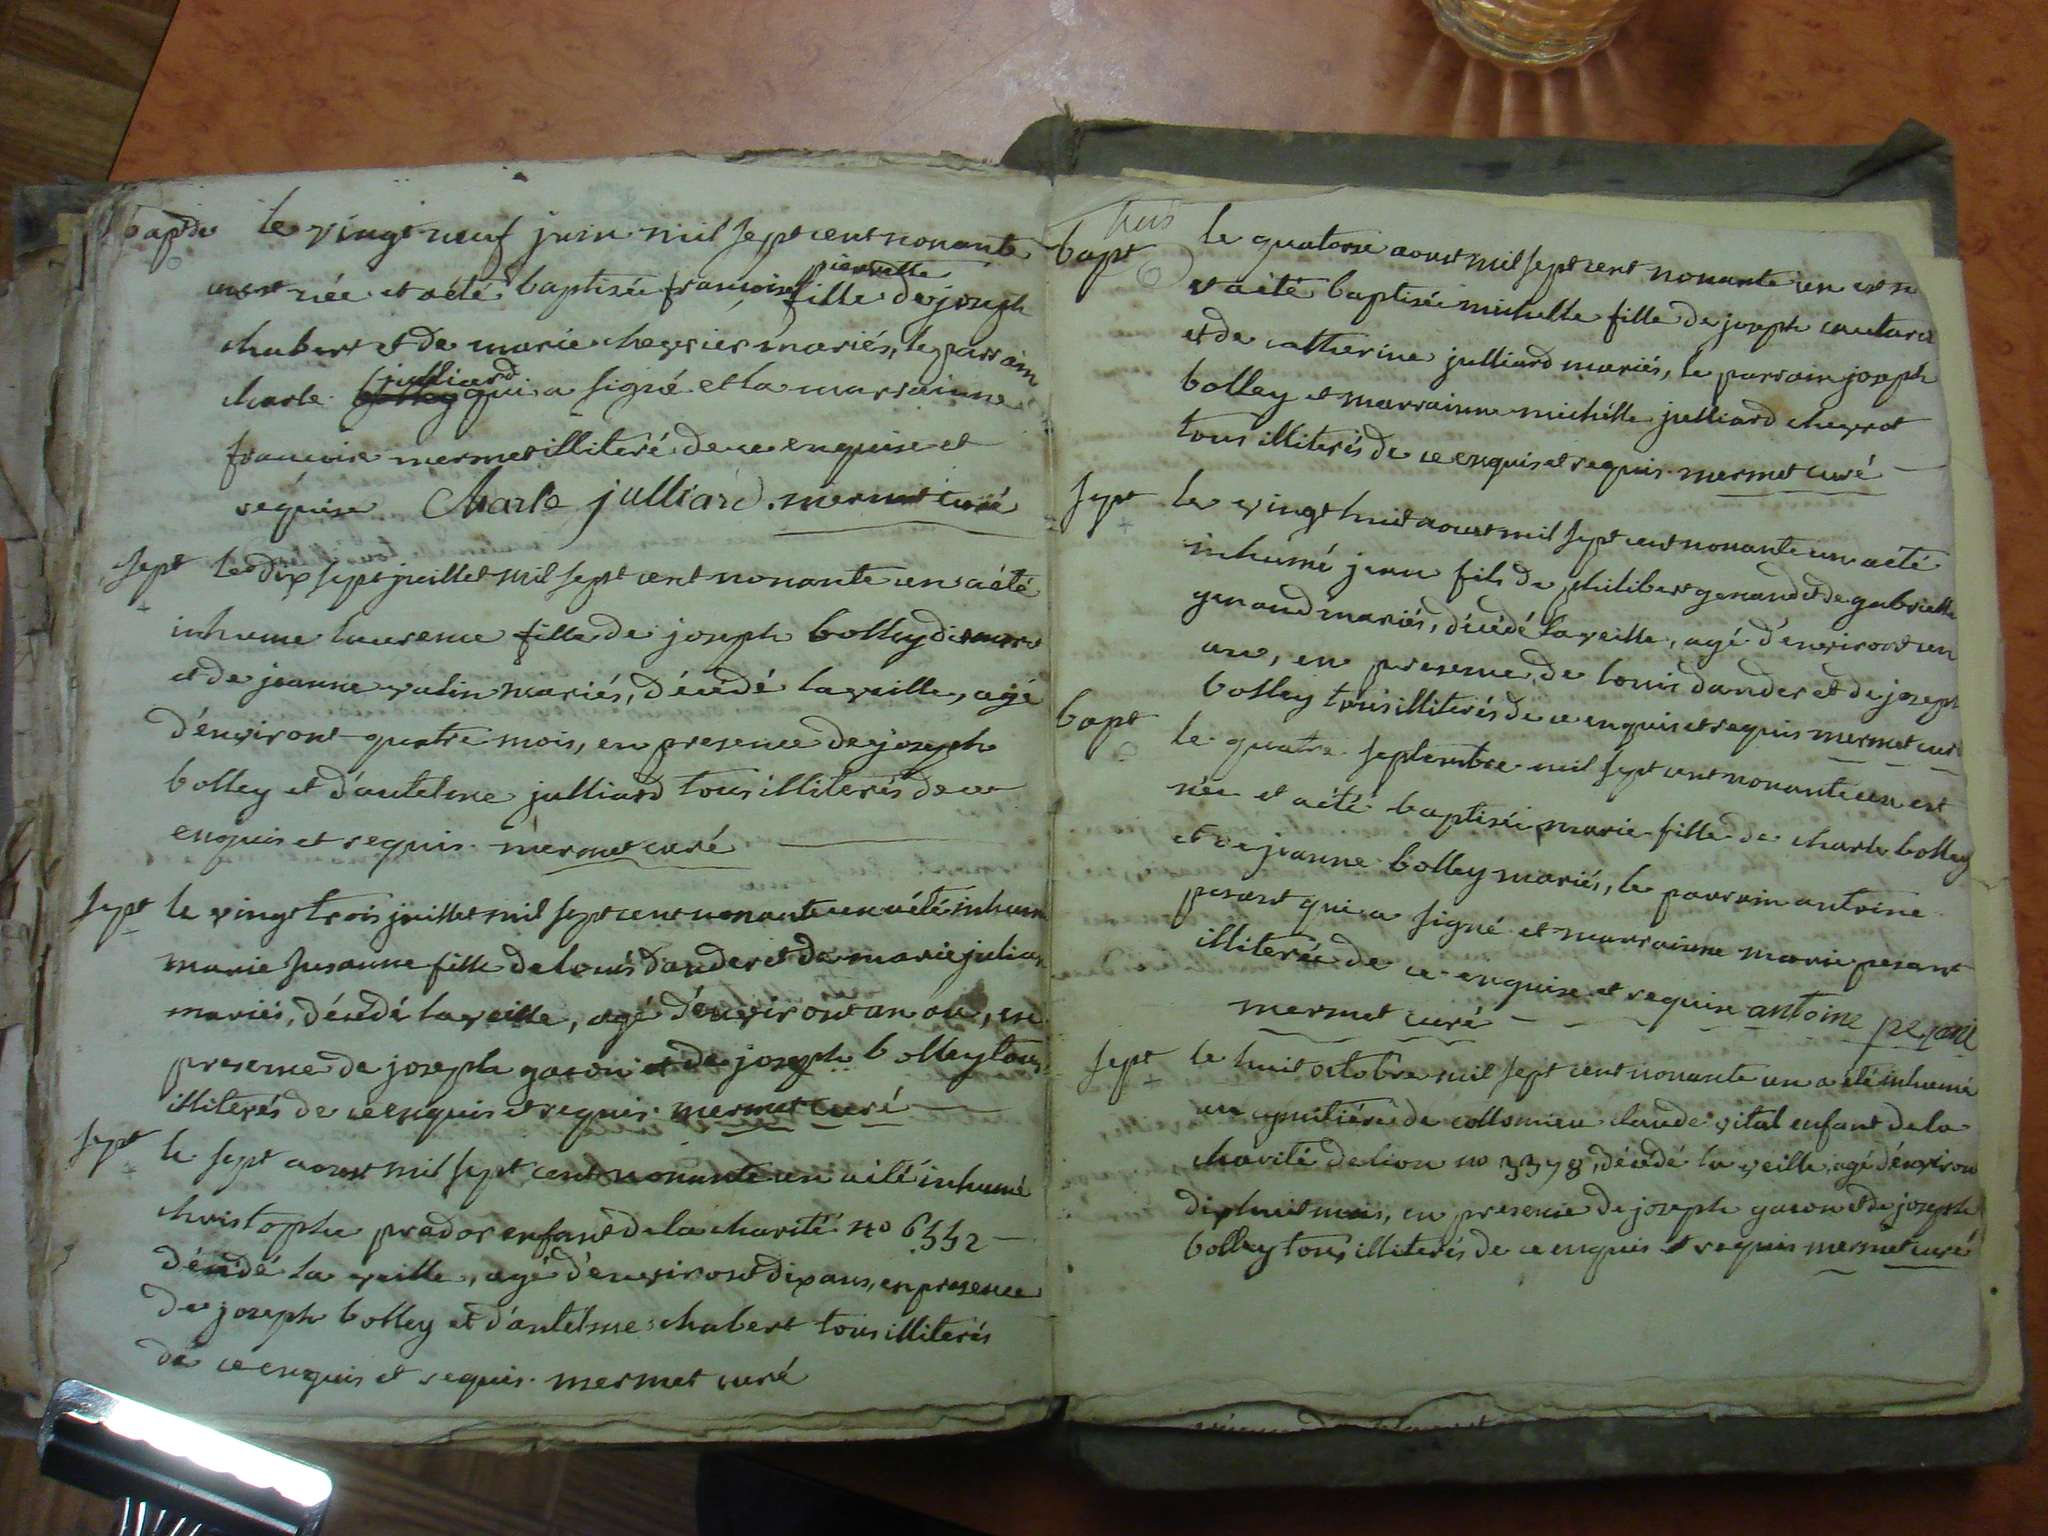 bapt de le vingt neuf juin mil sept cent nonante
un est née et a été baptisée françoise pierrette fille de joseph
chabert et de marie cheyrier mariés, le parrain
charle julliard qui a signé et la marrainne
françoise mermet illiteré de ce enquise et
requise Charle julliard. mermet curé
sept le dix sept juillet mil sept cent nonante un a été
inhume laurence fille de joseph bolley
et de jeanne mariés, décédé la veille, agé
d'environt quatre mois, en presence de joseph
bolley et d'antelme julliard tous illiterés de ce
enquis et requis. mermet curé
sept le vingt trois juillet mil sept cent nonante un a été inhum
marie susanne fille de louis dander et de marie
mariés, décédé la veille, agé d'environt un an, en
presence de joseph gacon et de joseph bolley tous
illiterés de ce enquis et requis. mermet curé
sept le sept aoust mil sept cent nonante un a été inhumé
christophe prador enfant de la charité no 6552
décédé la veille, agé d'environt dix ans, en presence
de joseph bolley et d'antelme chabert tous illiterés
de ce enquis et requis. mermet curé
bapt le quatorse aoust mil sept cent nonante un est n
et a été baptisée michelle fille de joseph
et de catherine julliard mariés, le parrain joseph
bolley et marrainne michelle julliard
tous illiterés de ce enquis et requis. mermet curé
sept le vingt huit aoust mil sept cent nonante un a été
inhumé jean fils de philibert genand et de gabrielle
genand mariés, décédé la veille, agé d'environt un
an, en presence de louis dander et de joseph
bolley tous illiterés de ce enquis et requis mermet curé
bapt le quatre septembre mil sept cent nonante un est
née et a été baptisée marie fille de charle bolley
et de jeanne bolley mariés, le parrain antoine
pesant qui a signé et marrainne marie pesant
illiterée de ce enquise et requise antoine pezant
mermet curé
sept le huit octobre mil sept cent nonante un a été inhumé
au cymitiére de collomieu claude vital enfant de la
charité de lion no 3378, décédé la veille, agé d'environ
dix huit mois, en presence de joseph gacon et de joseph
bolley tous illiterés de ce enquis et requis mermet curé